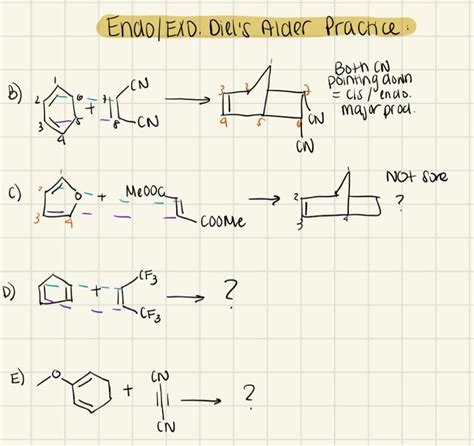 Endo/EXO. Diel's Alder Practice:
B) 1 2 3 4 5 6 7 8 CN CN 1 2 3 4 5 6 7 CN CN Both CN
pointing down
= cis/endo.
major prod.
C) 1 2 3 4 O + MeOOC COOMe 2 3 4 ? NOT sure
D) + CF3 CF3 ?
E) O + CN CN ?